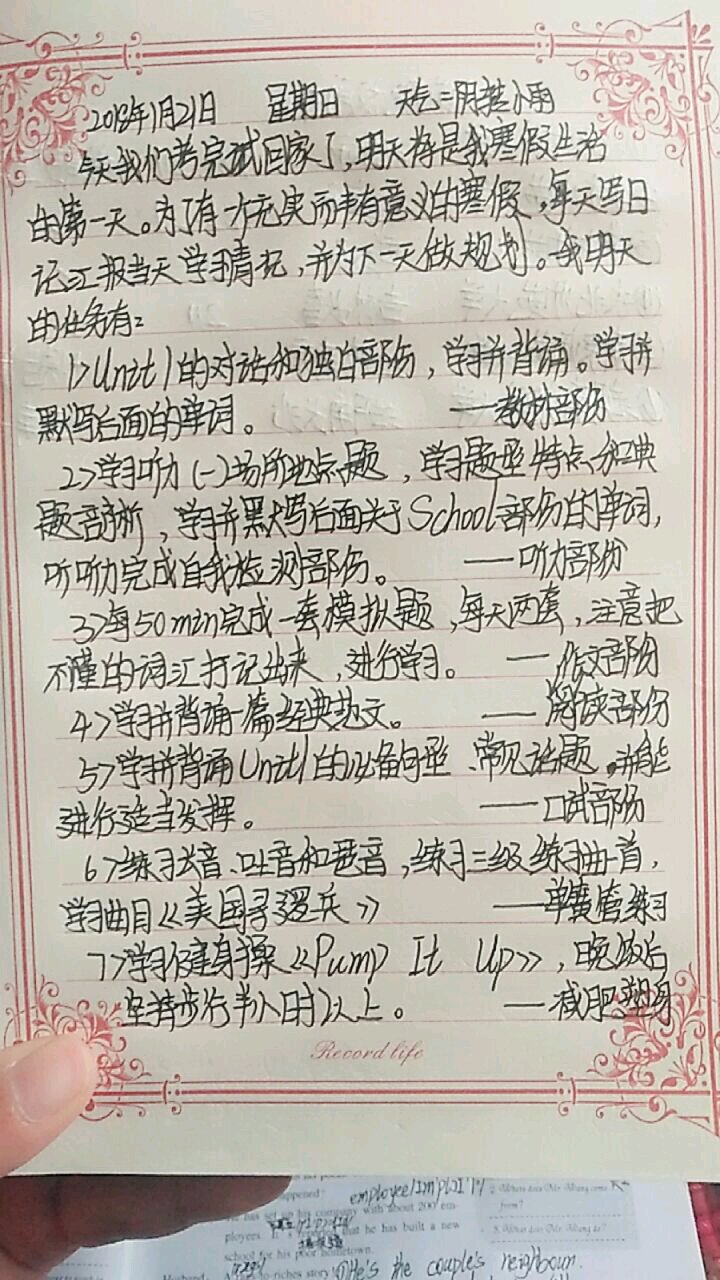 2018年1月21日 星期日 天气:阴转小雨
今天我们考完试回家了,明天将是我寒假生活
的第一天。为了有一个充实而丰有意义的寒假,每天写日
记汇报当天学习情况,并为下一天做规划。我明天
的任务有:
1>Unit1的对话和独白部伤,学习并背诵。学习并
默写后面的单词。 ——教材部伤
2>学习听力(一)场所地点题,学习题型特点和典
题剖析,学习并默写后面关于School部份的单词,
听听力完成自我检测部伤。 ——听力部份
3>每50min完成一套模拟题,每天两套,注意把
不懂的词汇打记出来,进行学习。 ——作文部份
4>学习并背诵一篇经典范文。 ——阅读部份
5>学习并背诵Unit1的必备句型、常见话题,并能
进行适当发挥。 ——口试部份
6>练习长音、吐音和琶音,练习三级练习曲一首,
学习曲目《美国寻逻兵》 ——单簧管练习
7>学习健身操《Pump It Up》,晚饭后
坚持步行半小时以上。 ——减肥塑身
Record life
employee
happened?
has set up his company with about 200 em-
ployees.
that he has built a new
school for his poor hometown.
-riches story
He's the couple's neighbour.
from?